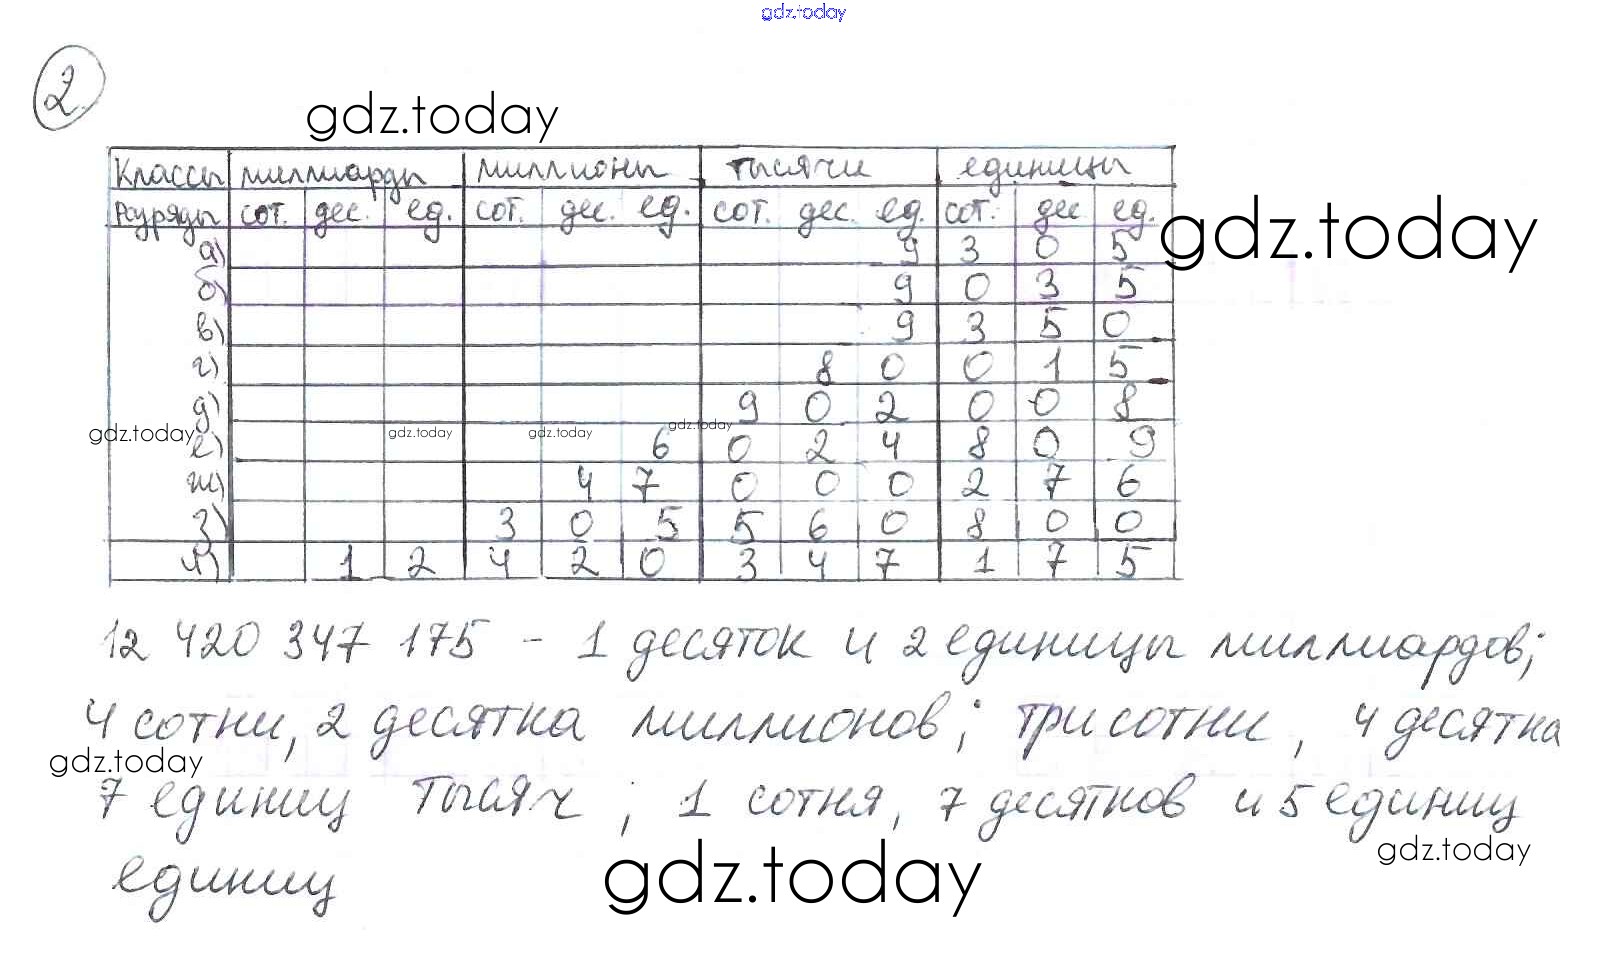 gdz.today
2
gdz.today
Классы миллиарды миллионы тысячи единицы
Разряды сот. дес. ед. сот. дес. ед. сот. дес. ед. сот. дес ед.
gdz.today
а) 9 3 0 5
б) 9 0 3 5
в) 9 3 5 0
г) 8 0 0 1 5
д) 9 0 2 0 0 8
gdz.today gdz.today gdz.today gdz.today
е) 6 0 2 4 8 0 9
ж) 4 7 0 0 0 2 7 6
з) 3 0 5 5 6 0 8 0 0
и) 1 2 4 2 0 3 4 7 1 7 5
12 420 347 175 - 1 десяток и 2 единицы миллиардов;
4 сотни, 2 десятка миллионов; три сотни, 4 десятка
gdz.today
7 единиц тысяч; 1 сотня, 7 десятков и 5 единиц
gdz.today
единиц
gdz.today